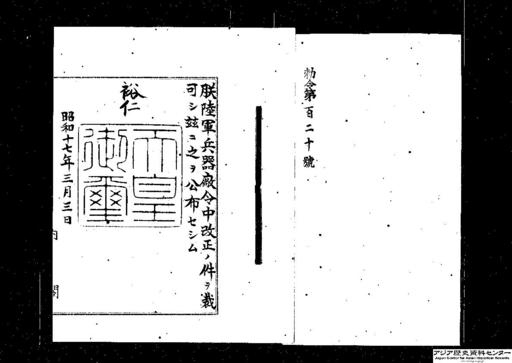 勅令第百二十號
朕陸軍兵器廠令中改正ノ件ヲ裁
可シ玆ニ之ヲ公布セシム
裕仁
天皇御璽
昭和十七年三月三日
内閣
アジア歴史資料センター
Japan Center for Asian Historical Records